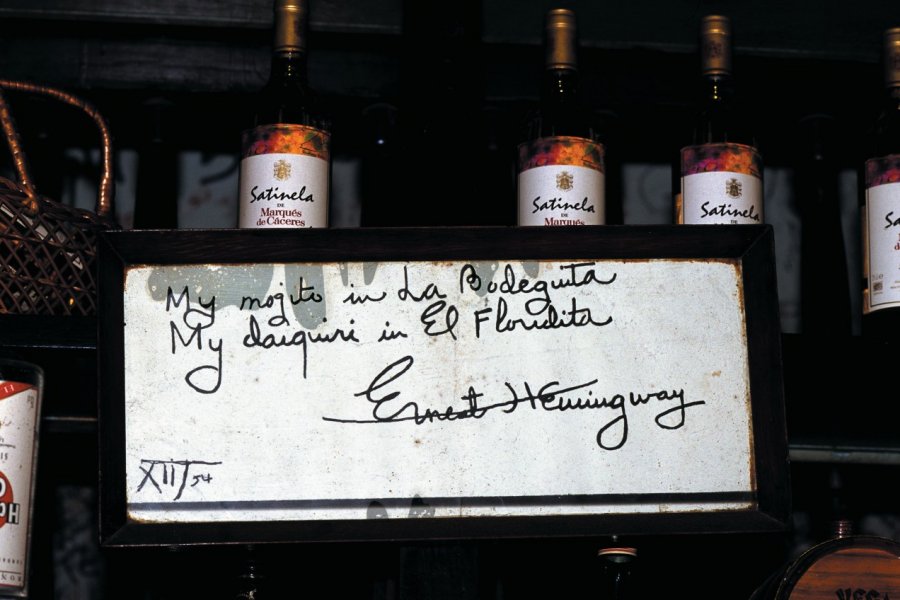 Satinela
DE
Marqués
de Cáceres
Satinela
DE
Marqués
Satinela
DE
My mojito in La Bodeguita
My daiquiri in El Floridita
Ernest Hemingway
XII 54